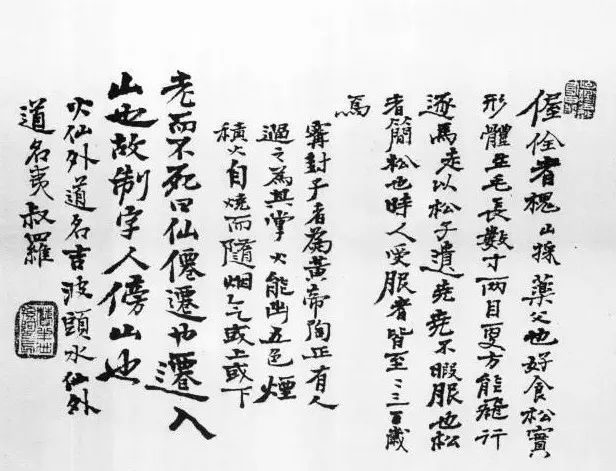 偓佺者槐山採藥父也好食松實
形體生毛長數寸兩目更方能飛行
逐馬走以松子遺堯堯不暇服也松
者簡松也時人受服者皆至二三百歲
焉
甯封子者為黃帝陶正有人
過之為其掌火能出五色煙
積火自燒而隨烟气或上或下
老而不死曰仙僊遷也遷入
山也故制字人傍山也
火仙外道名吉波頭水仙外
道名夷叔羅